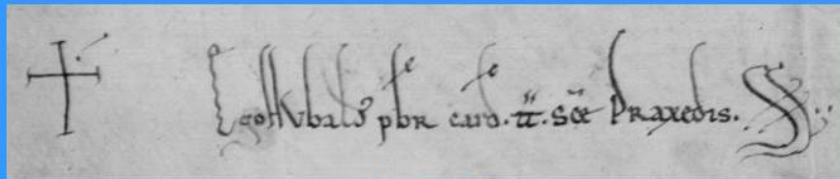 ✝ Ego Hubald' pbr card. tt. Sce Praxedis. SS